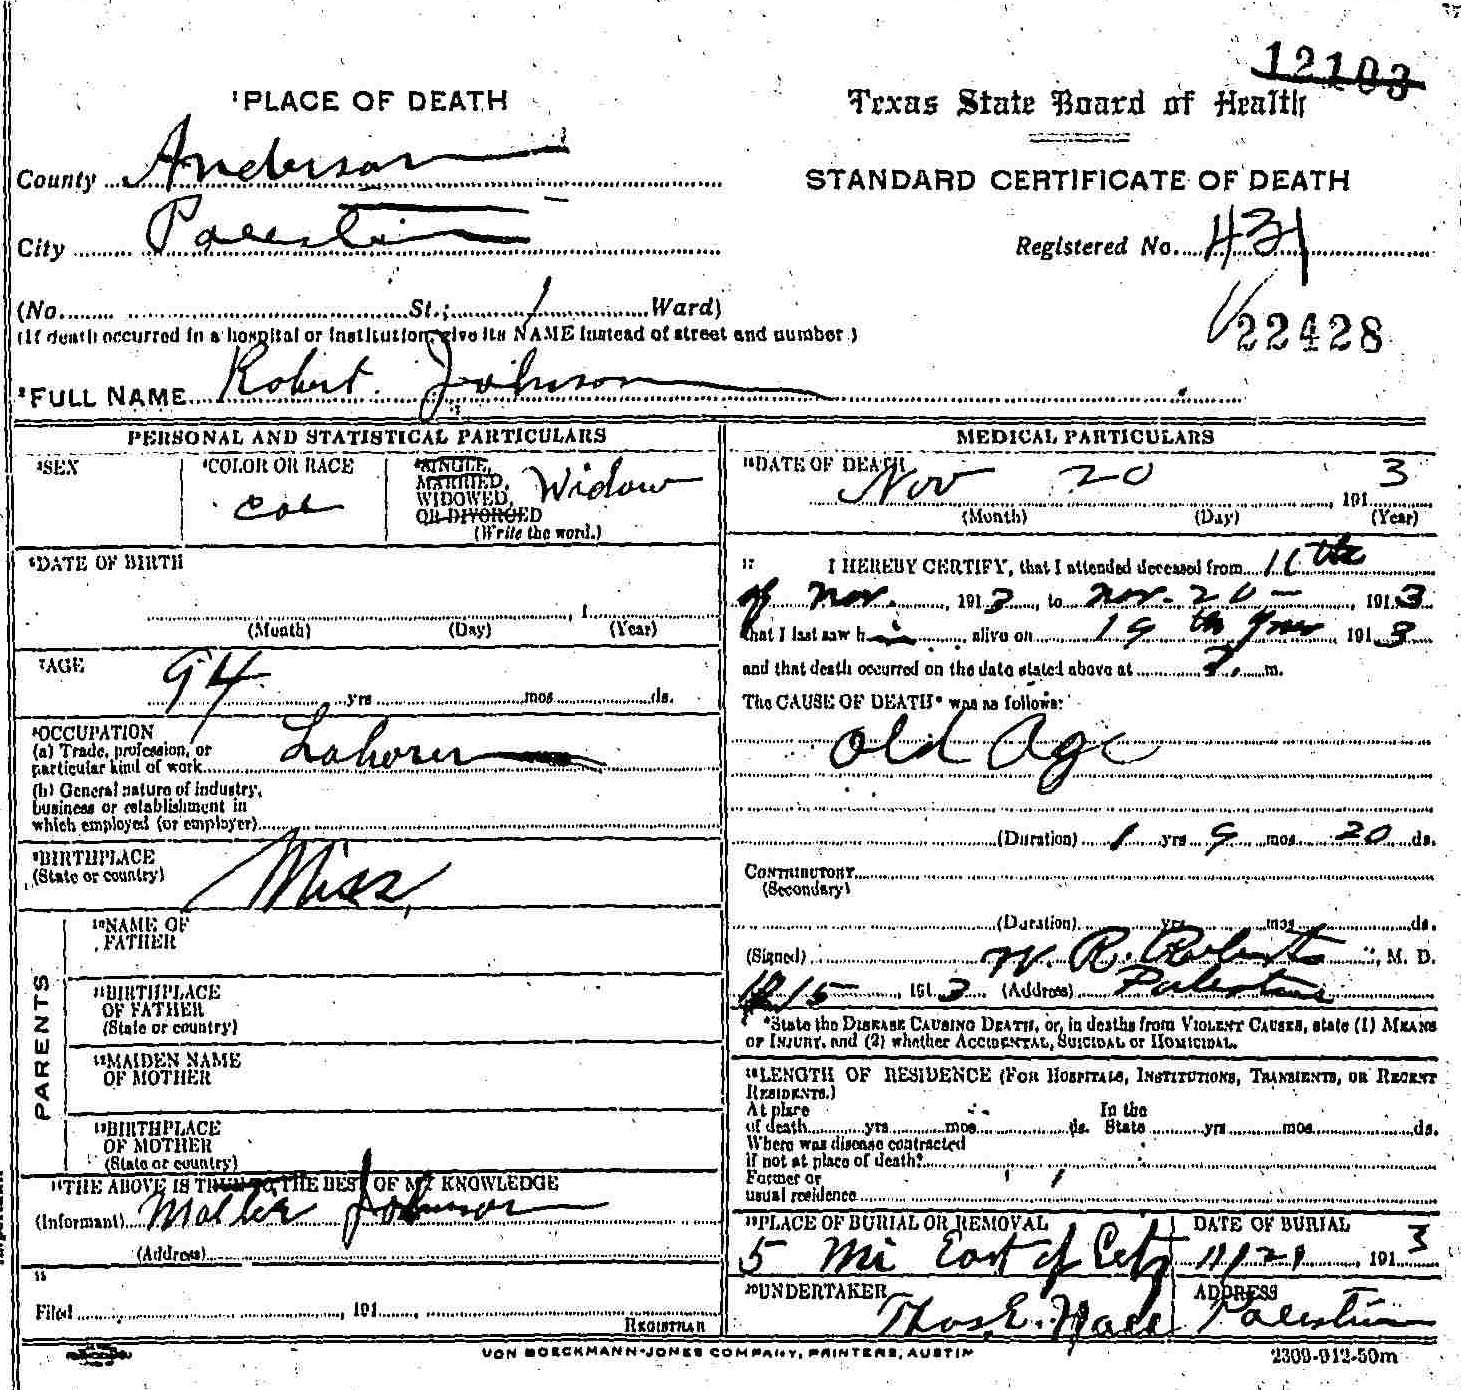 12103
¹PLACE OF DEATH
Texas State Board of Health
County Anderson
STANDARD CERTIFICATE OF DEATH
City Palestine
Registered No. 431
(No. St.; 1 Ward)
(If death occurred in a hospital or institution, give its NAME instead of street and number.)
22428
²FULL NAME Robert Johnson
PERSONAL AND STATISTICAL PARTICULARS
³SEX
⁴COLOR OR RACE
Col
⁵SINGLE,
MARRIED,
WIDOWED,
OR DIVORCED
(Write the word.)
Widow
⁶DATE OF BIRTH
, 1
(Month) (Day) (Year)
⁷AGE
94 yrs mos ds.
⁸OCCUPATION
(a) Trade, profession, or
particular kind of work Laborer
(b) General nature of industry,
business or establishment in
which employed (or employer)
⁹BIRTHPLACE
(State or country) Miss.
PARENTS
¹⁰NAME OF
FATHER
¹¹BIRTHPLACE
OF FATHER
(State or country)
¹²MAIDEN NAME
OF MOTHER
¹³BIRTHPLACE
OF MOTHER
(State or country)
¹⁴THE ABOVE IS TRUE TO THE BEST OF MY KNOWLEDGE
(Informant) Johnson
(Address)
¹⁵
Filed , 191 ,
REGISTRAR
MEDICAL PARTICULARS
¹⁶DATE OF DEATH
Nov 20, 191 3
(Month) (Day) (Year)
¹⁷ I HEREBY CERTIFY, that I attended deceased from 11th
of Nov. , 191 3, to Nov. 20 , 191 3
that I last saw h alive on 19th Nov 191 3
and that death occurred on the date stated above at m.
The CAUSE OF DEATH* was as follows:
Old Age
(Duration) 1 yrs 9 mos 20 ds.
CONTRIBUTORY
(Secondary)
(Duration) yrs mos ds.
(Signed) W. R. Roberts , M. D.
15 , 191 3 (Address) Palestine
*State the DISEASE CAUSING DEATH, or, in deaths from VIOLENT CAUSES, state (1) MEANS
OF INJURY, and (2) whether ACCIDENTAL, SUICIDAL or HOMICIDAL.
¹⁸LENGTH OF RESIDENCE (FOR HOSPITALS, INSTITUTIONS, TRANSIENTS, OR RECENT
RESIDENTS.)
At place In the
of death yrs mos ds. State yrs mos ds.
Where was disease contracted
if not at place of death?
Former or
usual residence
¹⁹PLACE OF BURIAL OR REMOVAL
5 Mi East of City
DATE OF BURIAL
11/21 , 191 3
²⁰UNDERTAKER
Thos. E. Hall
ADDRESS
Palestine
VON BOECKMANN-JONES COMPANY, PRINTERS, AUSTIN
2309-912-50m